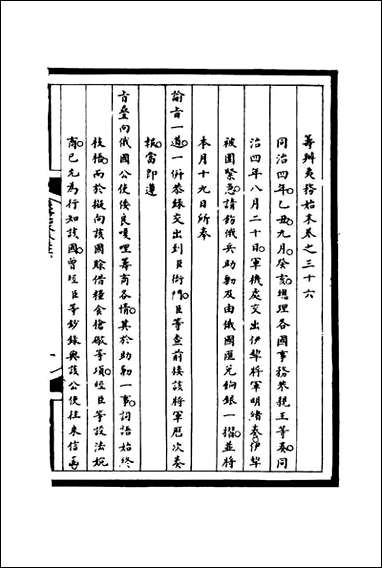 籌辦夷務始末卷之三十六
同治四年乙丑九月癸亥總理各國事務恭親王等奏同
治四年八月二十日軍機處交出伊犂將軍明緒奏伊犂
被圍緊急請飭俄兵助勦及由俄國匯兌餉銀一摺並將
本月十九日所奉
諭旨一道一併恭錄交出到臣衙門臣等查前接該將軍屢次奏
報當即遵
旨疊向俄國公使倭良嘎理籌商各情其於助勦一事詞語始終
枝梧而於擬向該國賒借糧食槍礮等項經臣等設法婉
商已允為行知該國曾經臣等鈔錄與該公使往來信函